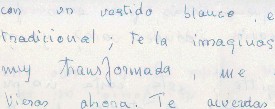 con un vestido blanco, e
tradicional; Te la imaginas
muy transformada, me
vieras ahora. Te acuerdas